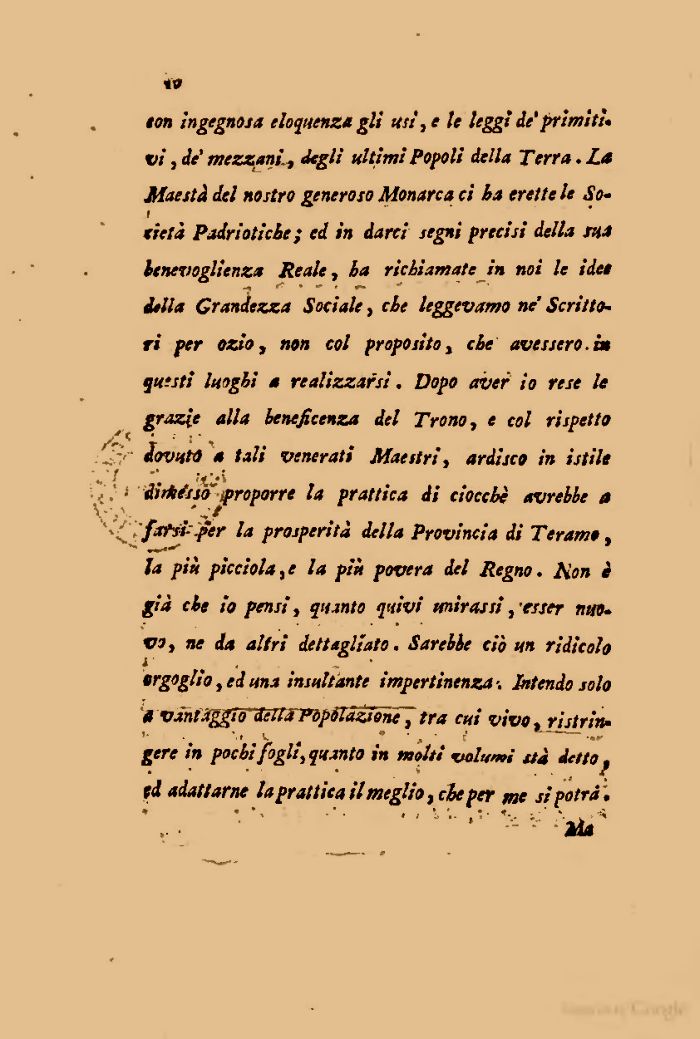 IV
con ingegnosa eloquenza gli usi, e le leggi de' primiti-
vi, de' mezzani, degli ultimi Popoli della Terra. La
Maestà del nostro generoso Monarca ci ha erette le So-
cietà Padriotiche; ed in darci segni precisi della sua
benevoglienza Reale, ha richiamate in noi le idee
della Grandezza Sociale, che leggevamo ne' Scritto-
ri per ozio, non col proposito, che avessero in
questi luoghi a realizzarsi. Dopo aver io rese le
grazie alla beneficenza del Trono, e col rispetto
dovuto a tali venerati Maestri, ardisco in istile
dimesso proporre la prattica di ciocchè avrebbe a
farsi per la prosperità della Provincia di Teramo,
la più picciola, e la più povera del Regno. Non è
già che io pensi, quanto quivi unirassi, esser nuo-
vo, ne da altri dettagliato. Sarebbe ciò un ridicolo
orgoglio, ed una insultante impertinenza. Intendo solo
a vantaggio della Popolazione, tra cui vivo, ristrin-
gere in pochi fogli, quanto in molti volumi stà detto,
ed adattarne la prattica il meglio, che per me si potrà.
Ma